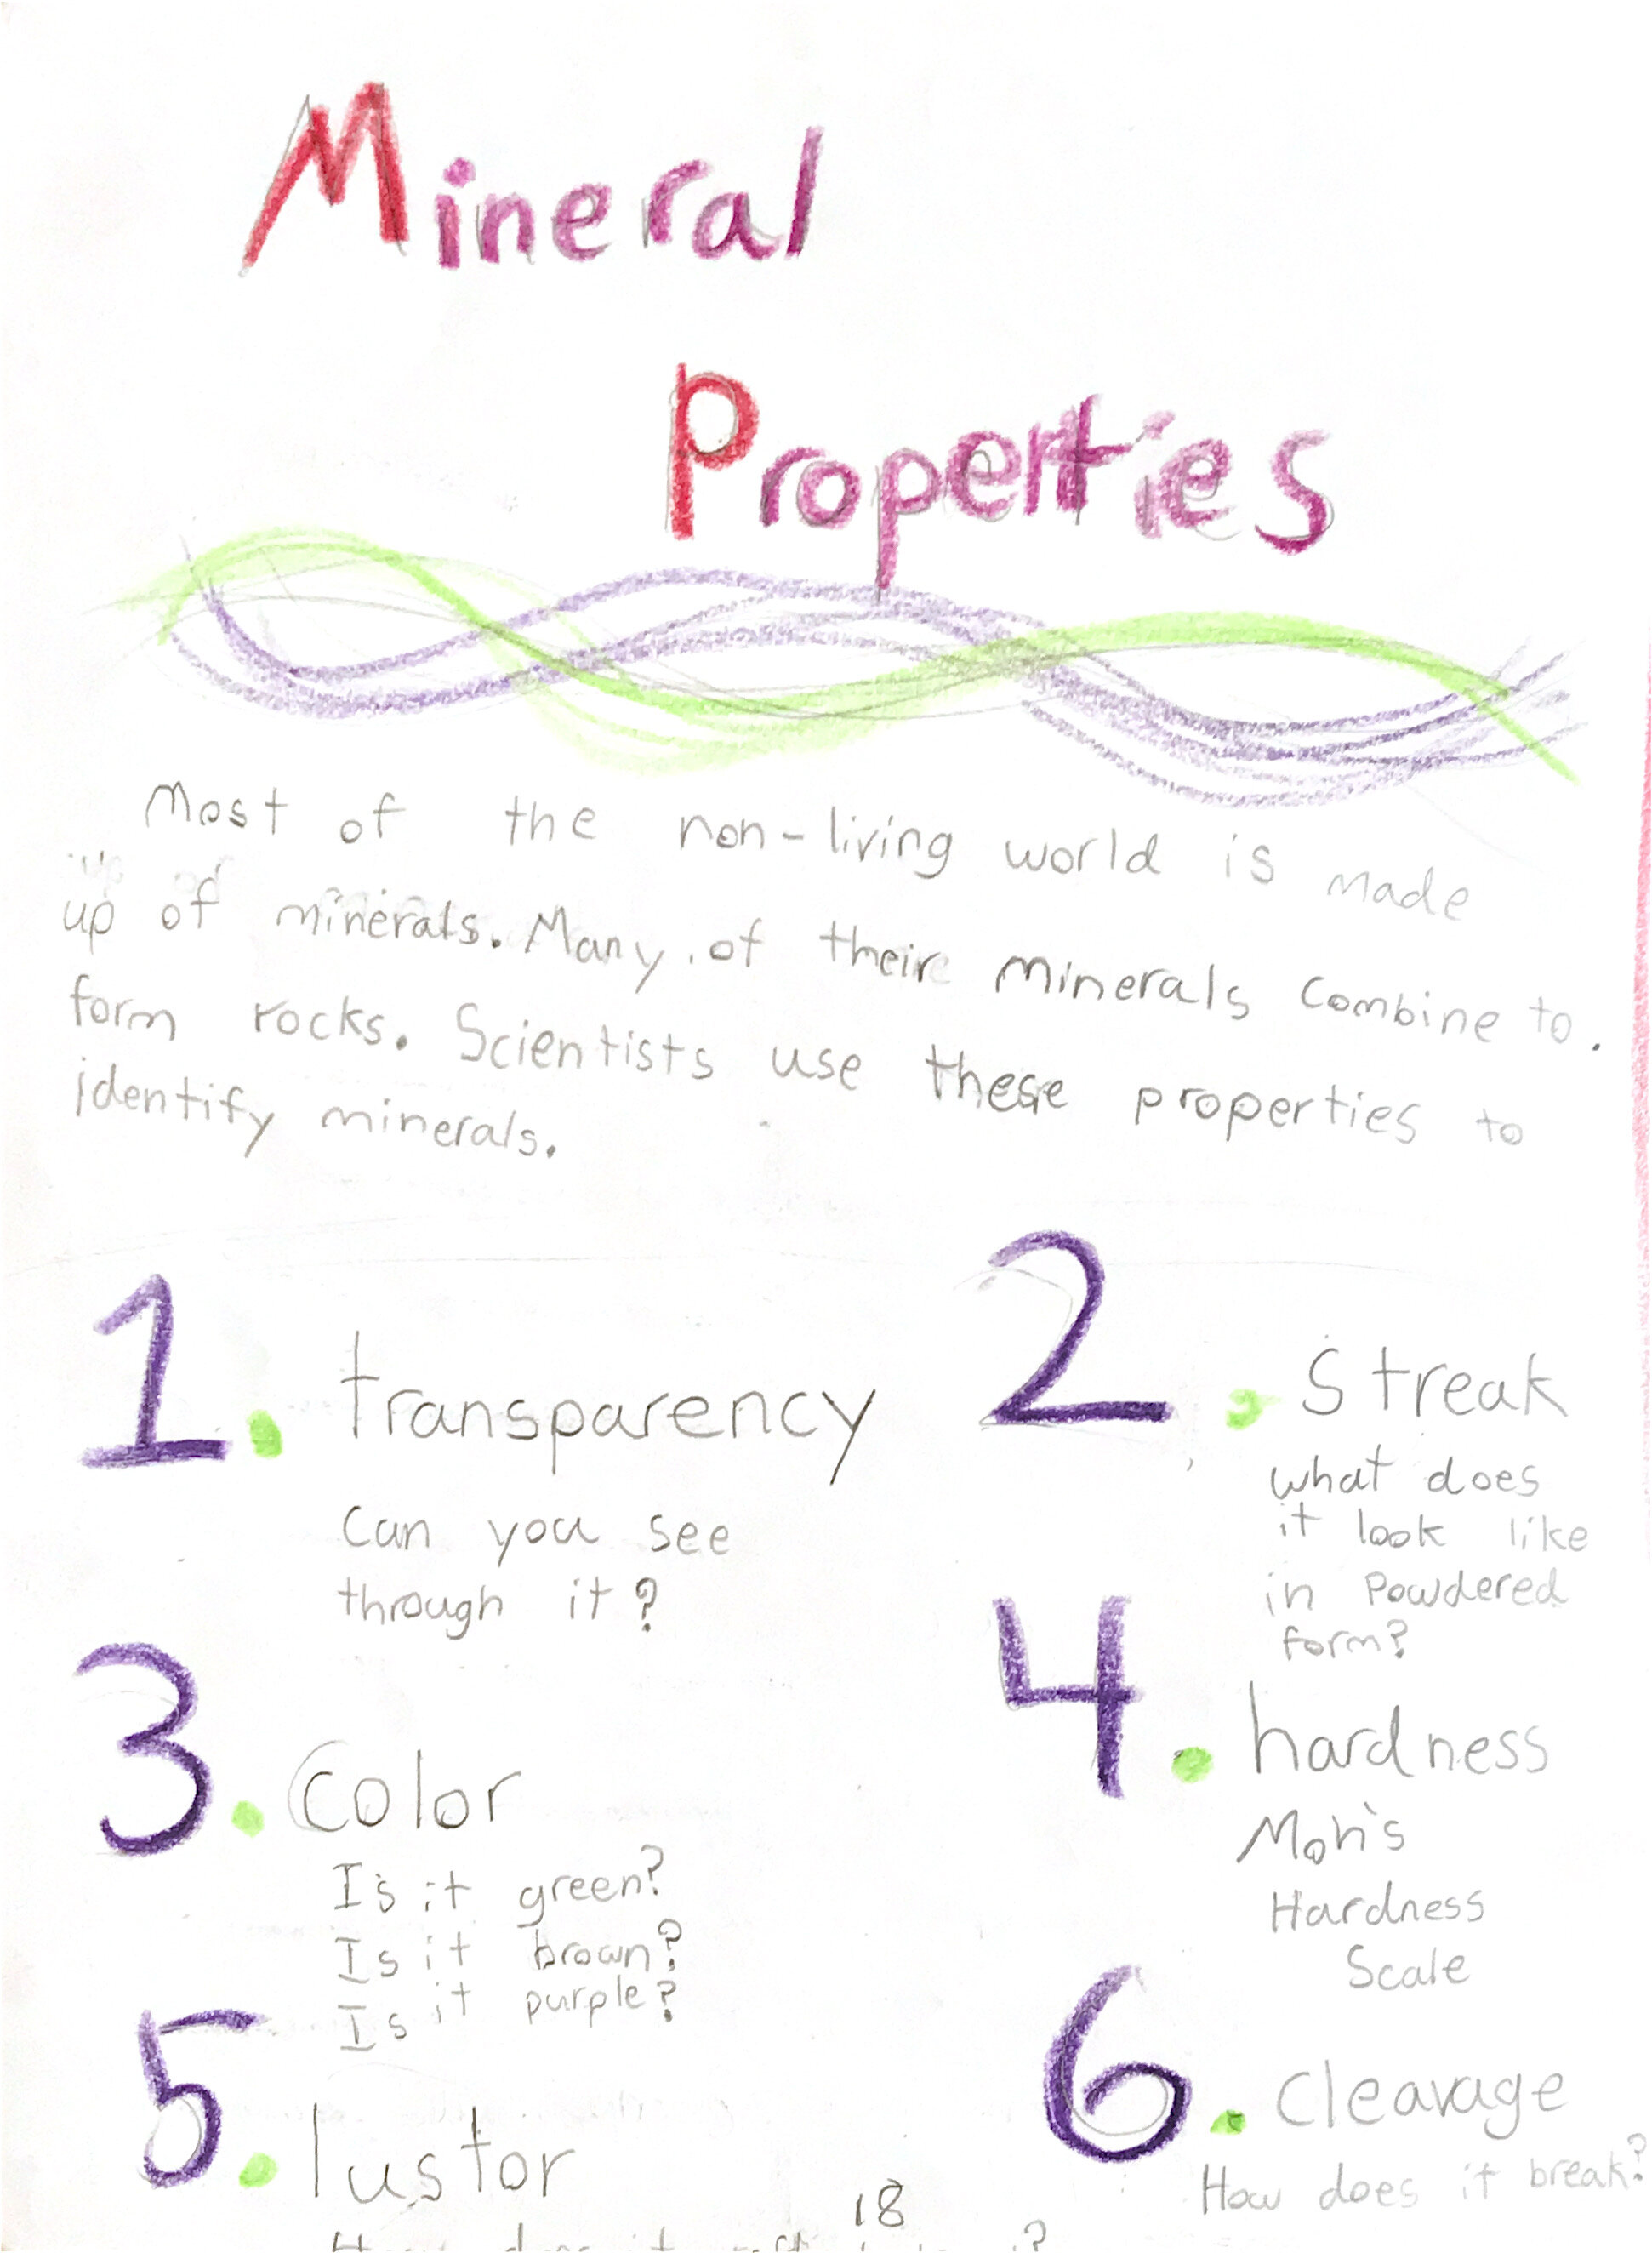 Mineral
Properties
Most of the non-living world is made
up of minerals. Many of their minerals combine to
form rocks. Scientists use these properties to
identify minerals.
1. transparency
Can you see
through it?
2. Streak
what does
it look like
in Powdered
form?
3. color
Is it green?
Is it brown?
Is it purple?
4. hardness
Moh's
Hardness
Scale
5. lustor
6. cleavage
How does it break?
18